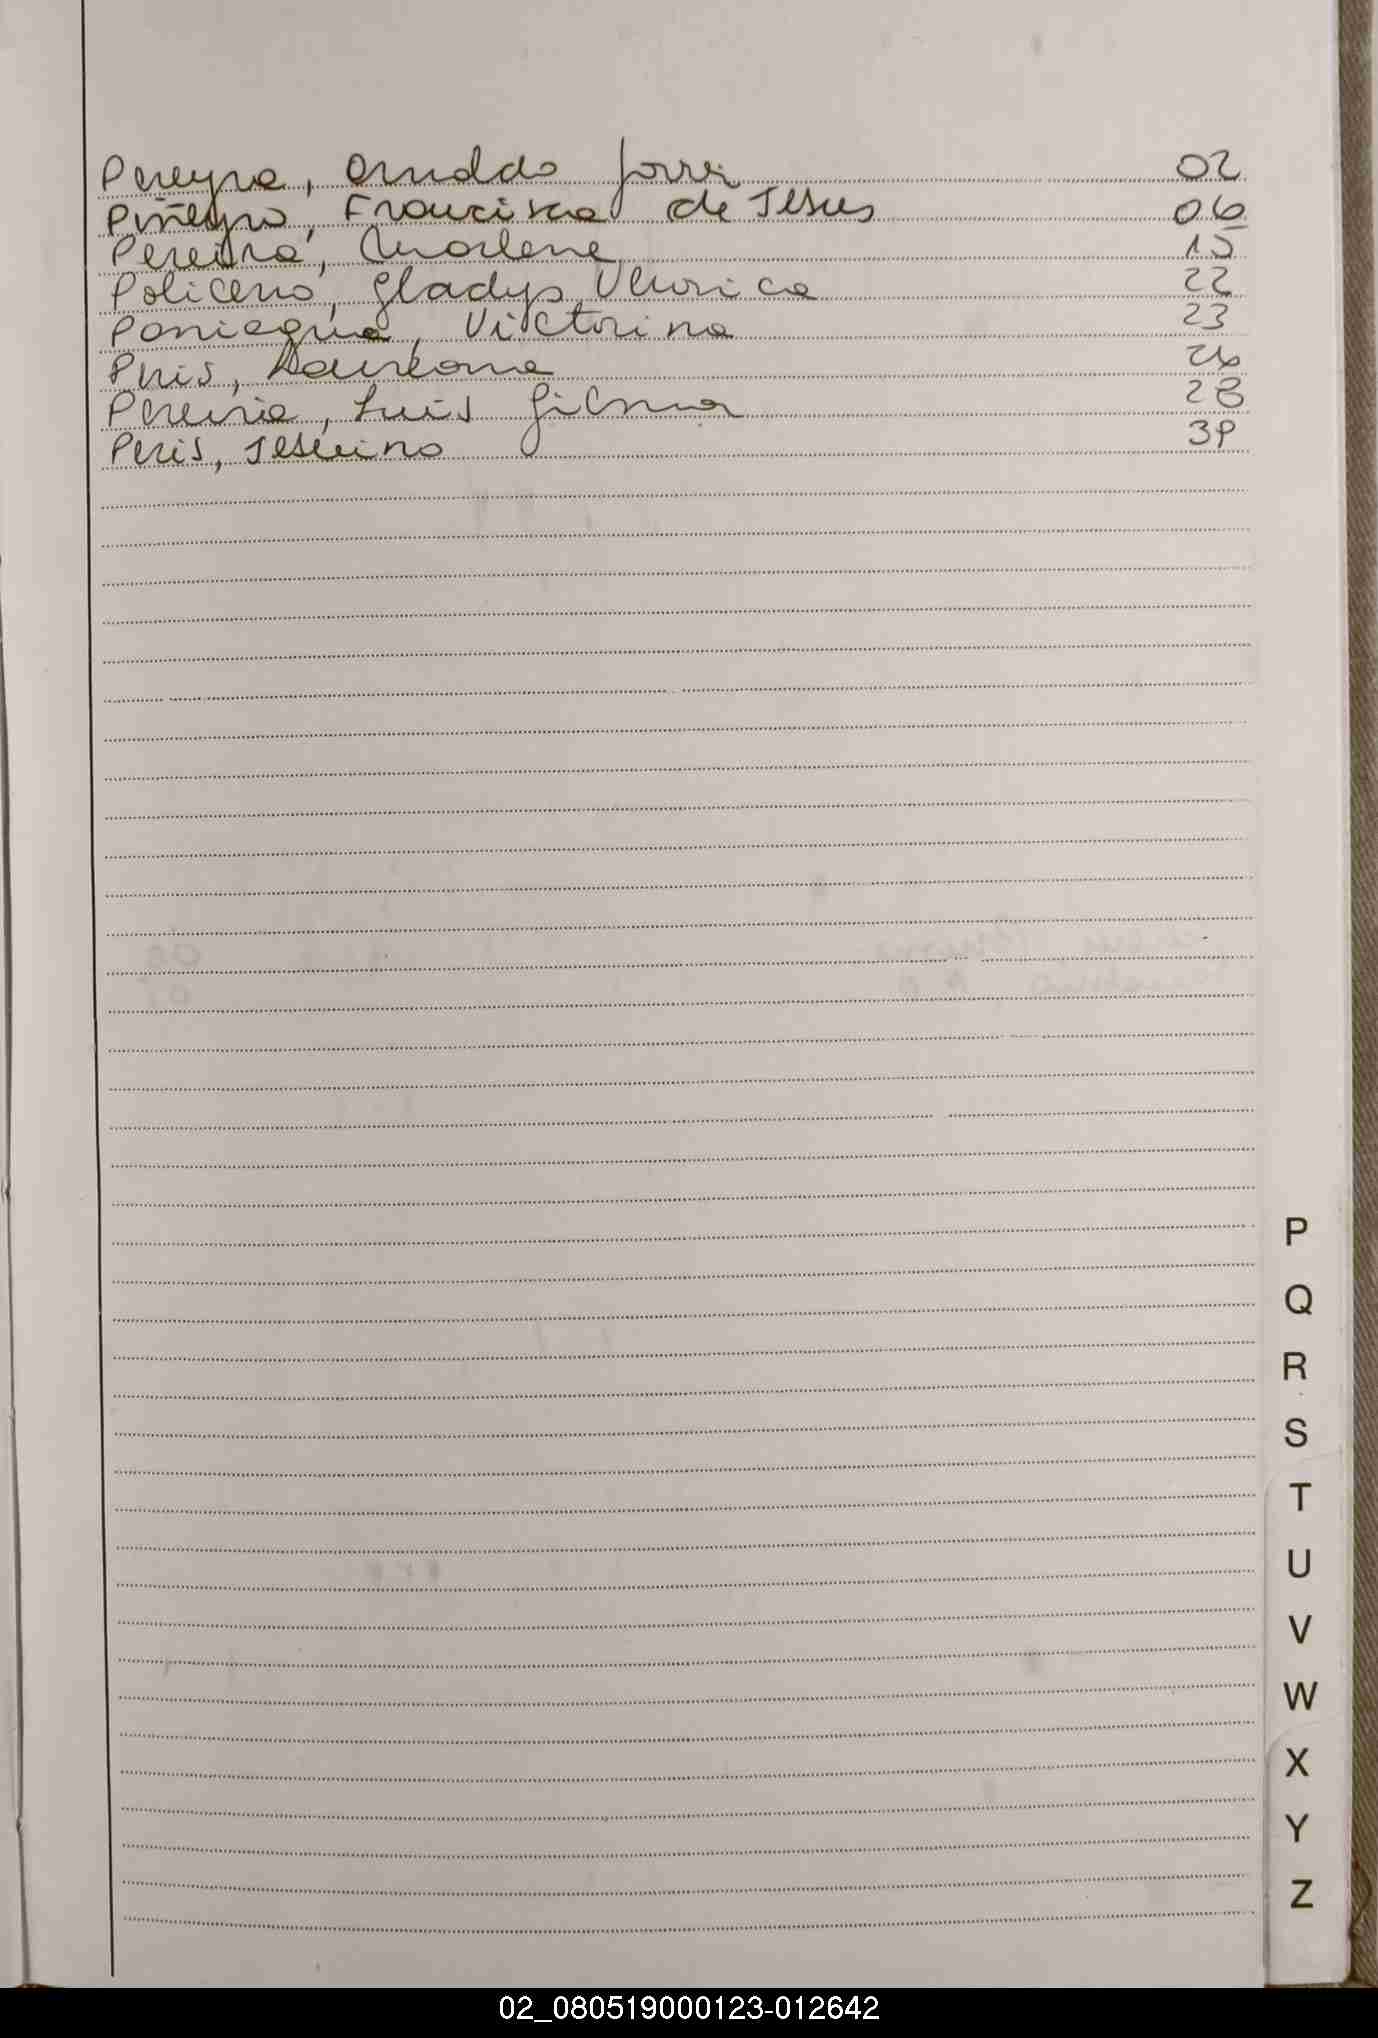 Pereyra, Arnaldo Jorge 02
Piñeyro, Francisca de Jesus 06
Pereira, Marlene 15
Policeno, Gladys Veronica 22
Paniagua, Victorina 23
Peris, 26
Pereira, Luis Gilmar 28
Peris, Jesuino 39
P
Q
R
S
T
U
V
W
X
Y
Z
02_080519000123-012642